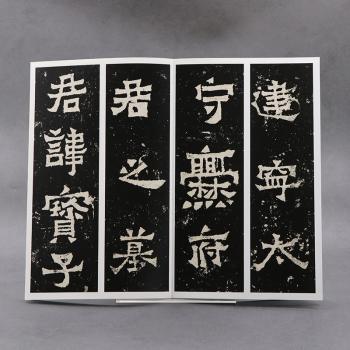 建寧太
守爨府
君之墓
君諱寶子